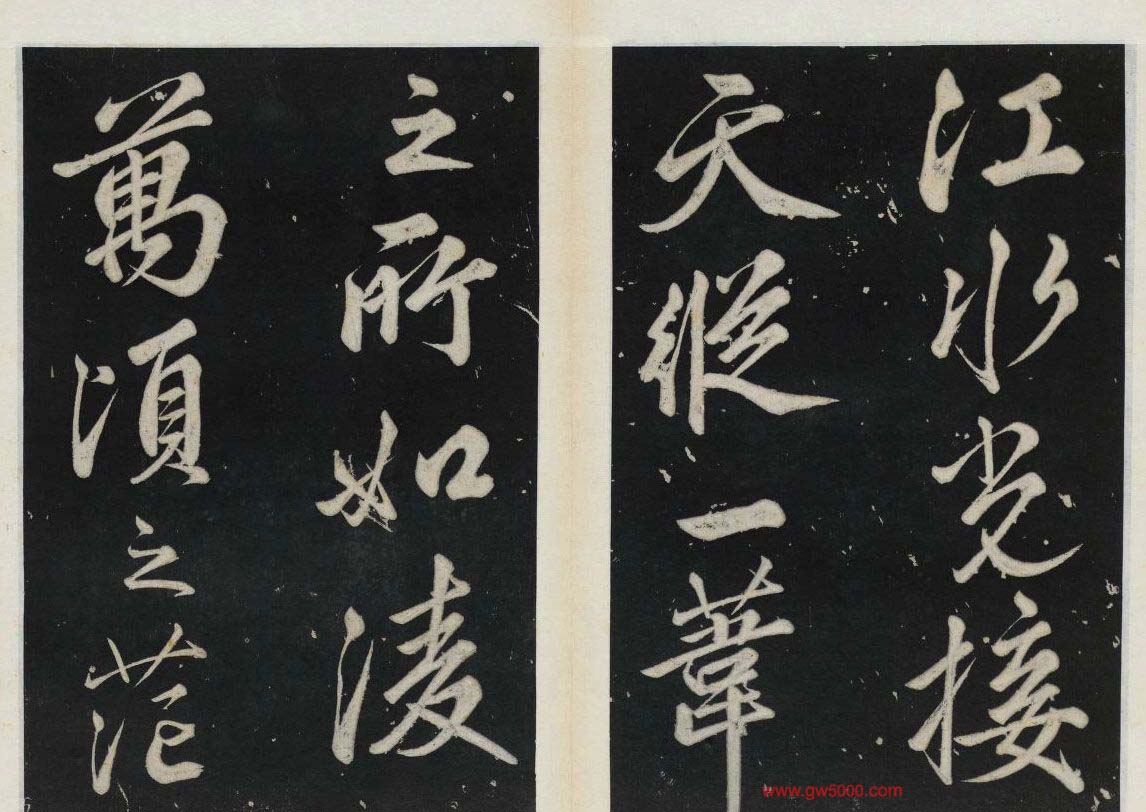 江水光接
天縱一葦
之所如淩
萬頃之茫
www.gw5000.com